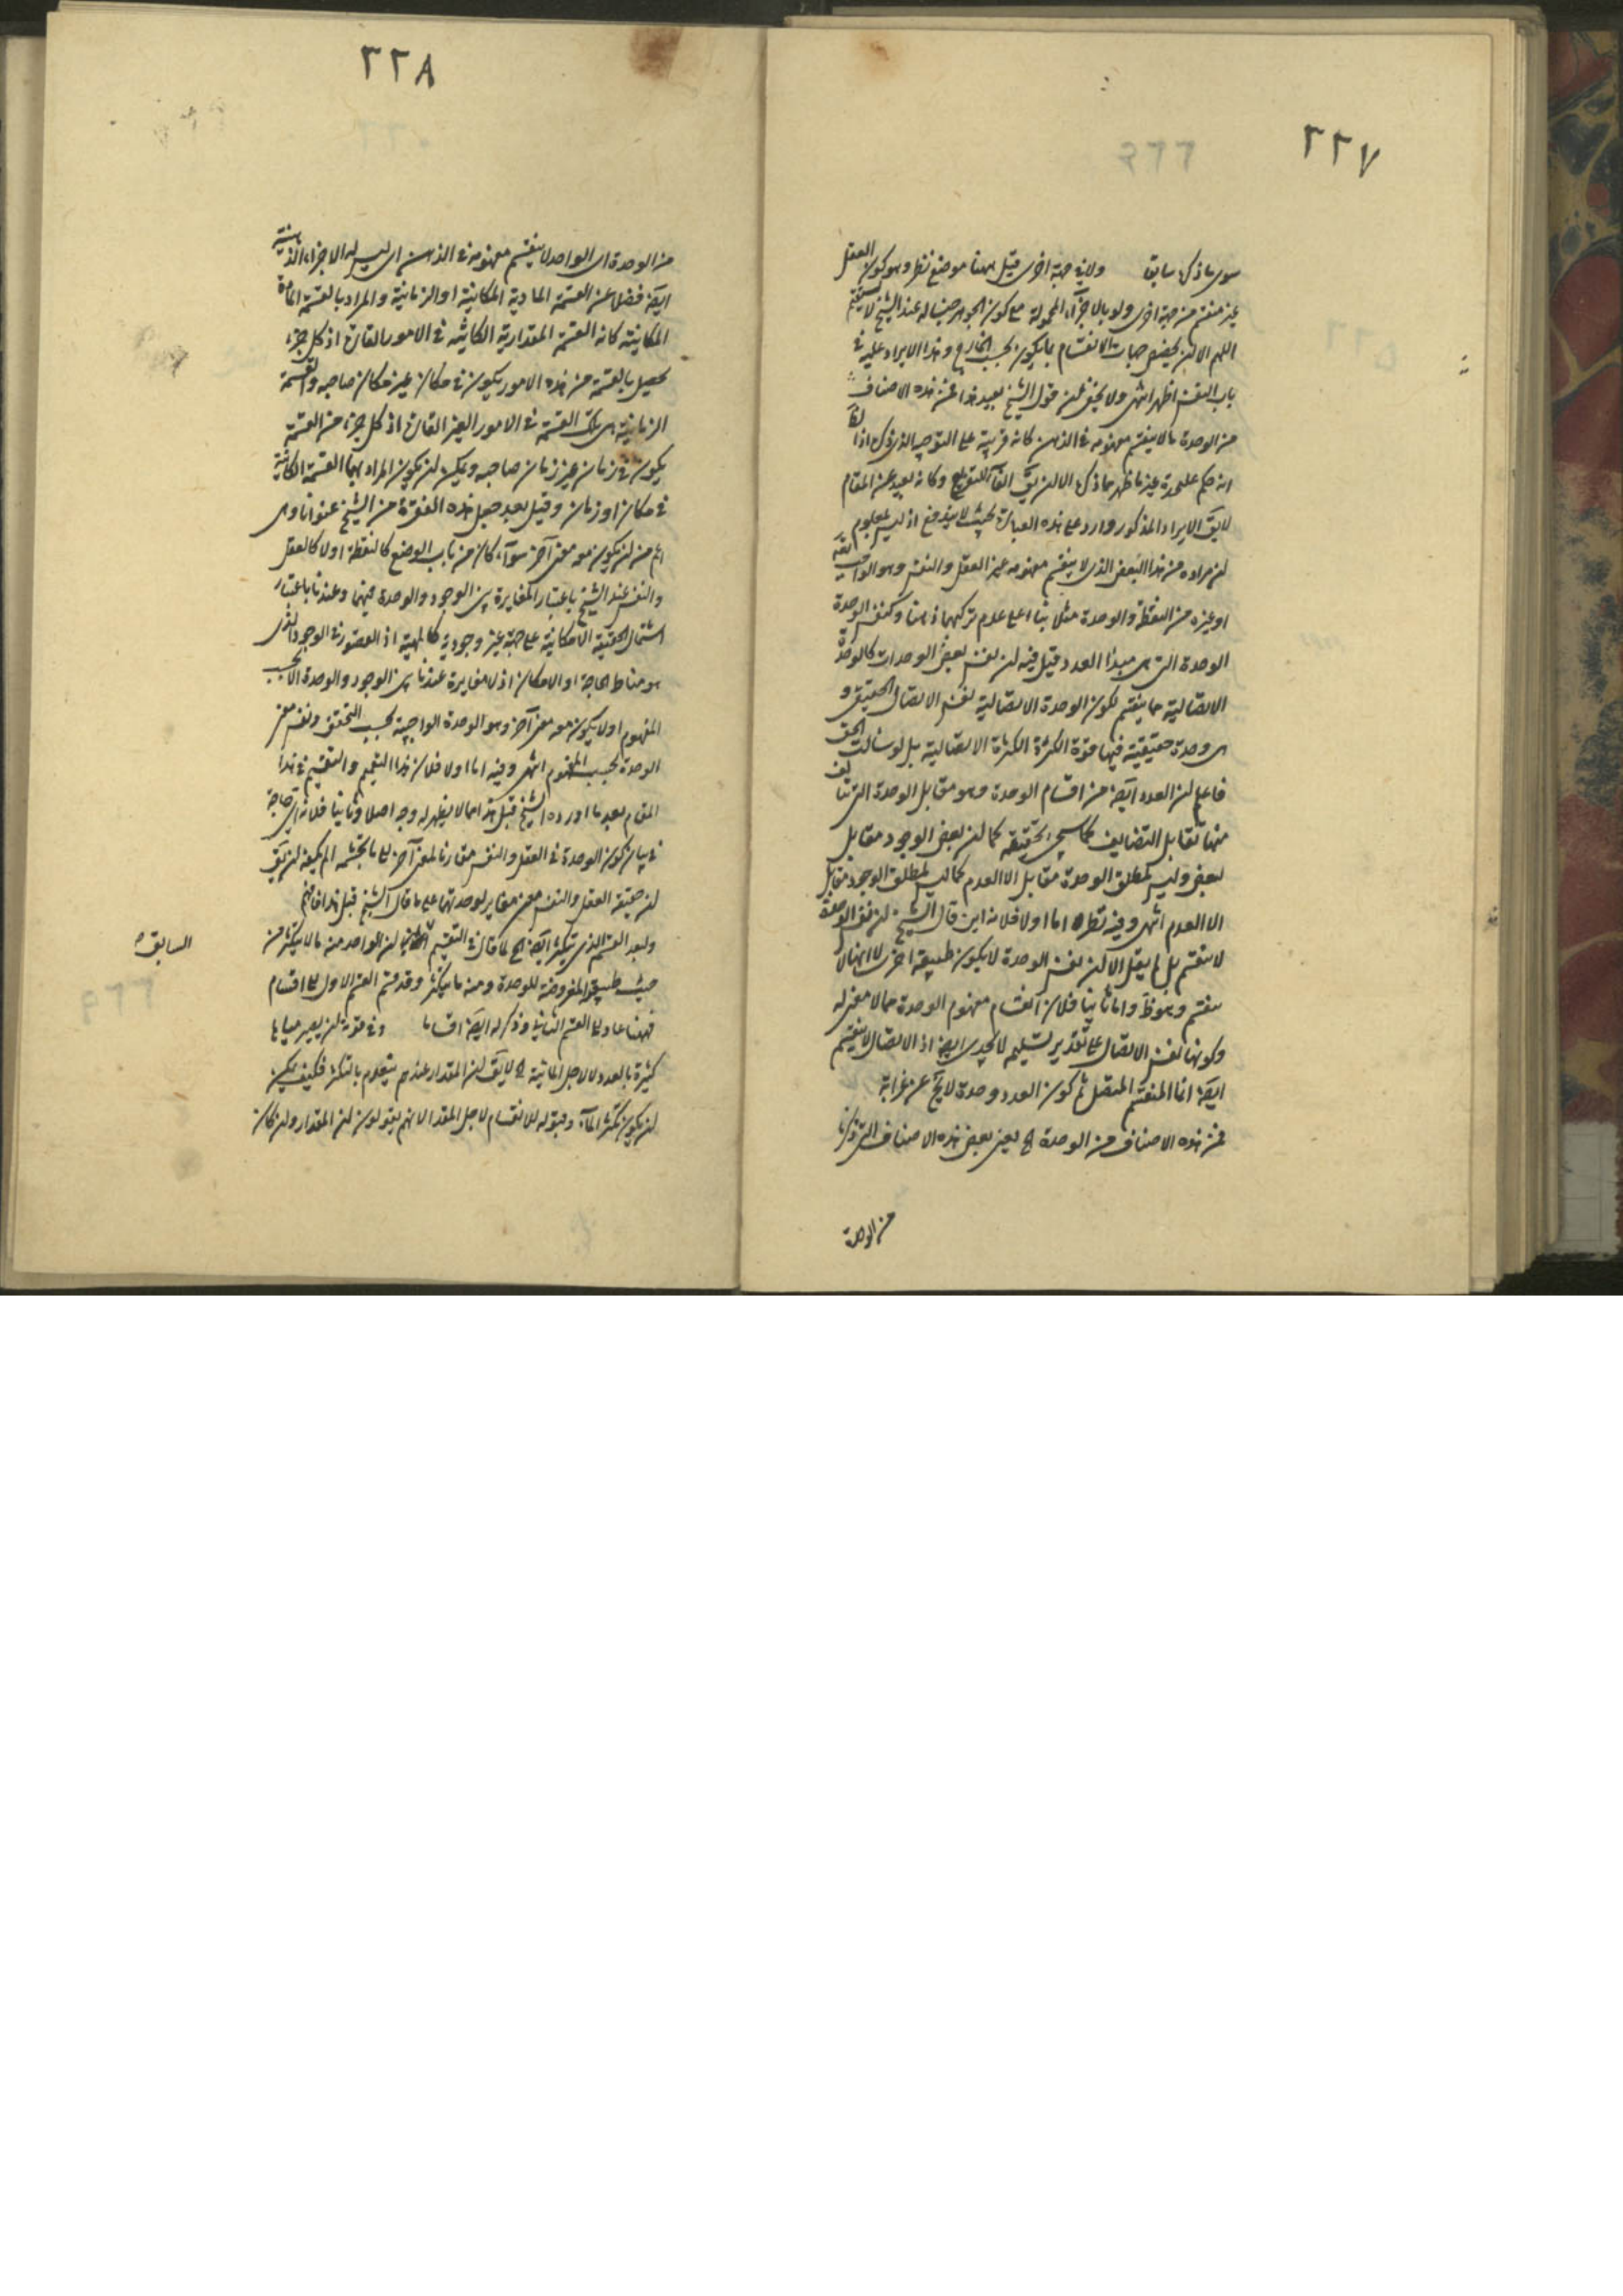 ٢٢٧
سوى ما ذكره سابقا ولا في جهة اخرى قيل ههنا موضع نظر وهو كون العقل
غير منقسم من جهة اخرى ولو بالاجزاء المحمولة مع كون الجوهر جنسا له عند الشيخ لا يستقيم
اللهم الا ان يخصص جهات الانقسام بما يكون بحسب الخارج وهذا الايراد عليه في
باب النفس اظهر انتهى ولا يخفى ان قول الشيخ بعيد هذا فمن هذه الاصناف
من الوحدة ما لا ينقسم مفهومه في الذهن كانه قرينة على التوجيه الذي ذكره اذ
انه حكم على حدة غير ما ظهر مما ذكره الا ان يق الفاء للتفريع وكانه بعيد عن المقام
لا يق الايراد المذكور وارد على هذه العبارة بحيث لا يندفع اذ ليس بمعلوم
ان مراده من هذا البعض الذي لا ينقسم مفهومه غير العقل والنفس وهو الواجب تعه
او غيره من النقطة والوحدة مثلا بناء على عدم تركبهما ذهنا وكنفس الوحدة
الوحدة التي هي مبدأ العدد قيل فيه ان نفس بعض الوحدات كالوحدة
الاتصالية مما ينقسم لكون الوحدة الاتصالية نفس الاتصال الحقيقي و
هي وحدة حقيقية فيها قوة الكثرة الكثرة الاتصالية بل لو سالت الحق
فاعلم ان العدد ايضا من اقسام الوحدة وهو مقابل الوحدة التي تتالف
منها تقابل التضايف كما سيجيء تحقيقه كما ان بعض الوجود مقابل
لبعض وليس لمطلق الوحدة مقابل الا العدم كما ليس لمطلق الوجود مقابل
الا العدم انتهى وفيه نظر اما اولا فلانه اين قال الشيخ ان نفس الوحدة
لا ينقسم بل لم يقل الا ان نفس الوحدة لا يكون طبيعة اخرى لا انها لا
ينقسم وهو ظ واما ثانيا فلان انقسام مفهوم الوحدة مما لا معنى له
وكونها نفس الاتصال على تقدير تسليم لا يجدي ايضا اذ الاتصال لا ينقسم
ايضا انما المنقسم المتصل ثم كون العدد وحدة لا يخ عن غرابة
فمن هذه الاصناف من الوحدة الخ يعني بعض هذه الاصناف التي ذكرها
من الوحدة
٢٢٨
من الوحدة اي الواحد لا ينقسم مفهومه في الذهن اي ليس له الاجزاء الذهنية
ايضا فضلا عن القسمة المادية المكانية او الزمانية والمراد بالقسمة المادة
المكانية كانه القسمة المقدارية الكائنة في الامور القارة اذ كل جزء
يحصل بالقسمة من هذه الامور يكون في مكان غير مكان صاحبه والقسمة
الزمانية هي تلك القسمة في الامور الغير القارة اذ كل جزء من القسمة
يكون في زمان غير زمان صاحبه ويمكن ان يكون المراد بهما القسمة الكائنة
في مكان او زمان وقيل بعد جعل هذه الفقرة من الشيخ عنوانا وهي
اعم من ان يكون معه معنى آخر سواء كان من باب الوضع كالنقطة او لا كالعقل
والنفس عند الشيخ باعتبار المغايرة بين الوجود والوحدة فيهما وعندنا باعتبار
اشتمال الحقيقة الامكانية على جهة غير وجودية كالمهية اذ القصور في الوجود الذي
هو مناط الحاجة او الامكان اذ لا مغايرة عندنا بين الوجود والوحدة الا بحسب
المفهوم او لا يكون معه معنى آخر وهو الوحدة الواجبية بحسب التحقق ونفس معنى
الوحدة بحسب المفهوم انتهى وفيه اما اولا فلان هذا التعميم والتقسيم في هذا
المقام بعد ما اورده الشيخ قبل هذا مما لا يظهر له وجه اصلا وثانيا فلانه اي حاجة
في بيان كون الوحدة في العقل والنفس مقارنا لمعنى آخر الى ما تجشمه الم يكفه ان يق
ان حقيقة العقل والنفس معنى مغاير لوحدتهما على ما قال الشيخ قبل هذا فافهم
ولنعد القسم الذي يتكثر ايضا الخ لما قال في التقسيم السابق ان الواحد منه ما لا يتكثر من
السابق ه
حيث طبيعته المفروضة للوحدة ومنه ما يتكثر وقد قسم القسم الاول الى اقسام
فههنا عاد الى القسم الثاني وذكر له ايضا اقساما وفي قوته ان يصير مياها
كثيرة بالعدد لا لاجل المائية الخ لا يق ان المقدار عندهم ينعدم بالتكثر فكيف يمكن
ان يكون تكثر الماء وقبوله للانقسام لاجل المقدار لانهم يقولون ان المقدار وان كان